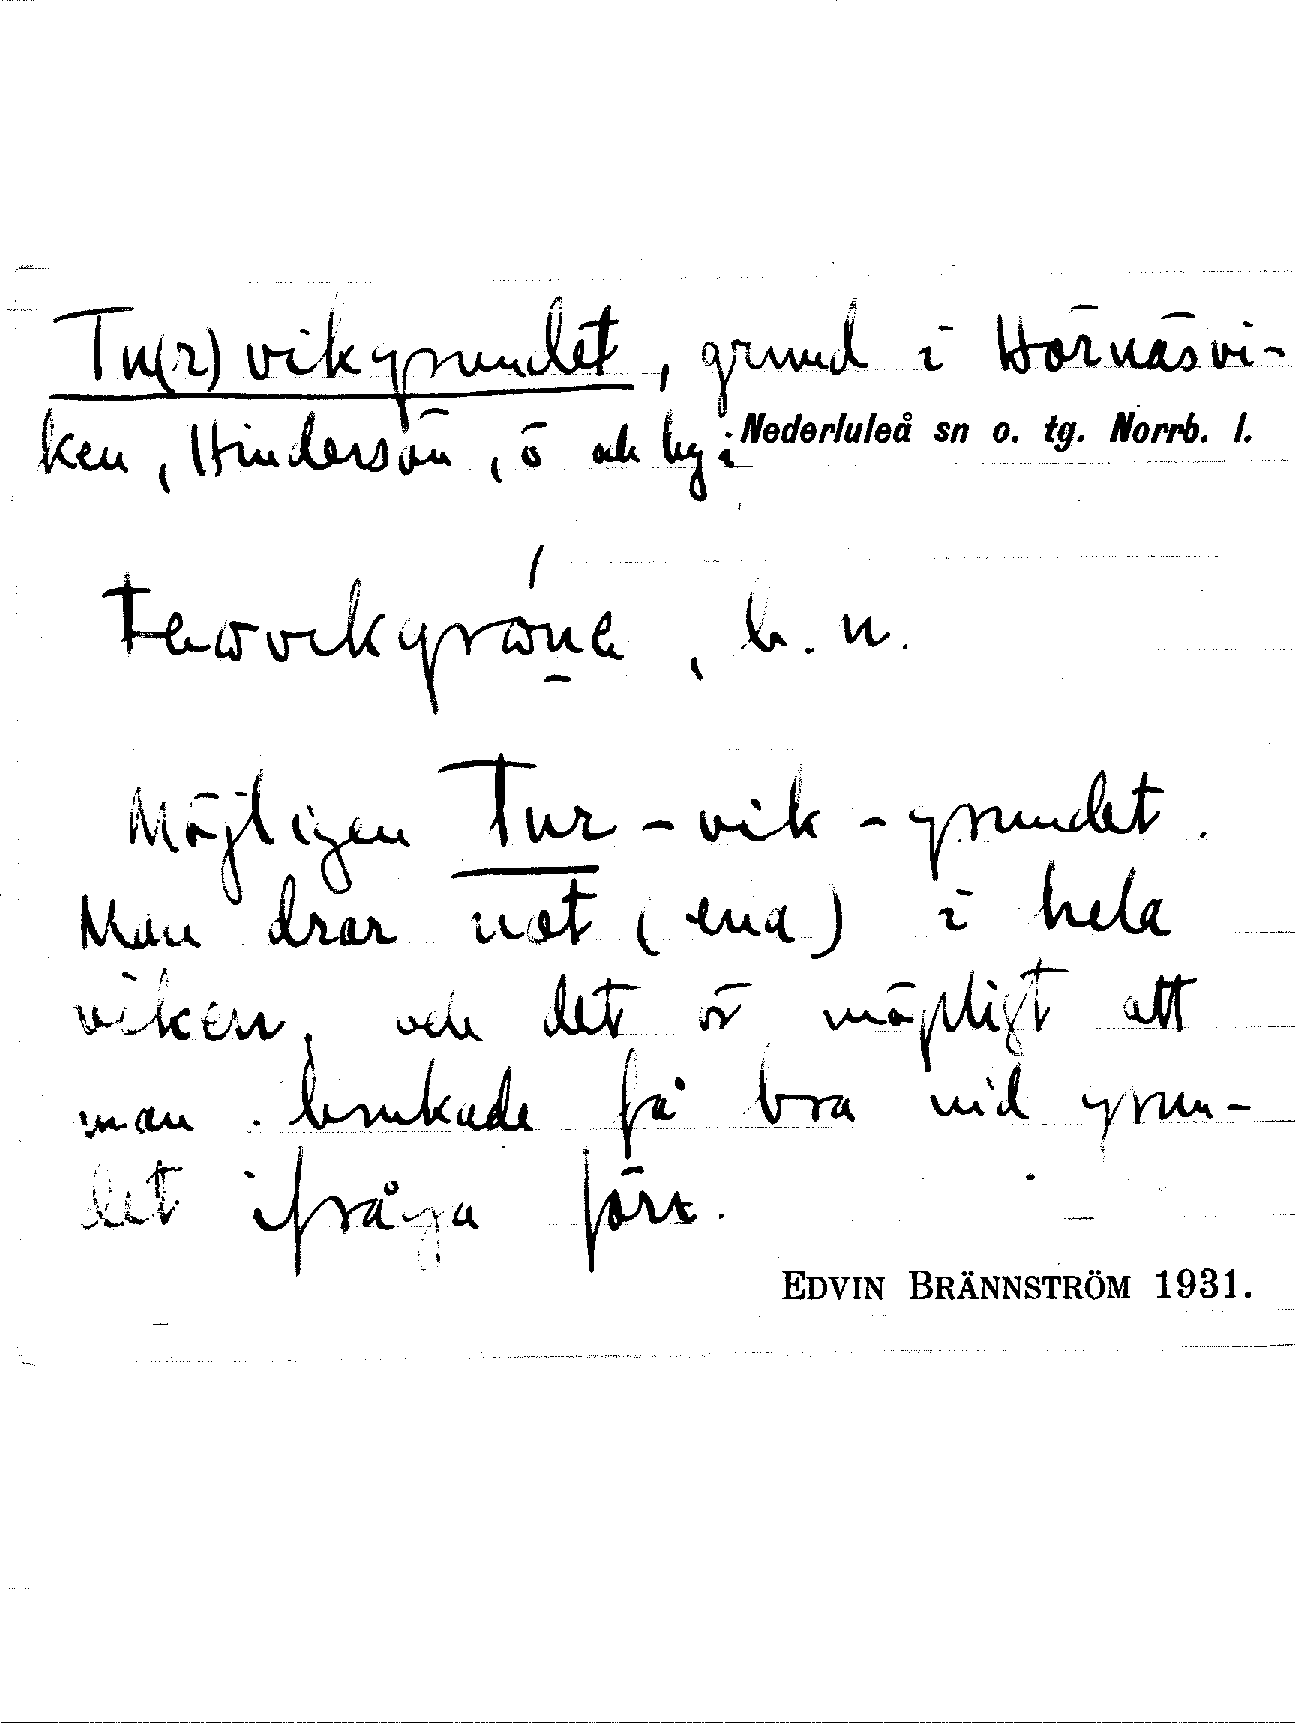 Tu(r)vikgrundet, grund i Hörnäsvi-
ken, Hindersön, ö och by i Nederluleå sn o. tg. Norrb. l.
b. n.
Möjligen Tur-vik-grundet.
Man drar not (ena) i hela
viken, och det är möjligt att
man brukade få bra vid grun-
det ifråga förr.
EDVIN BRÄNNSTRÖM 1931.